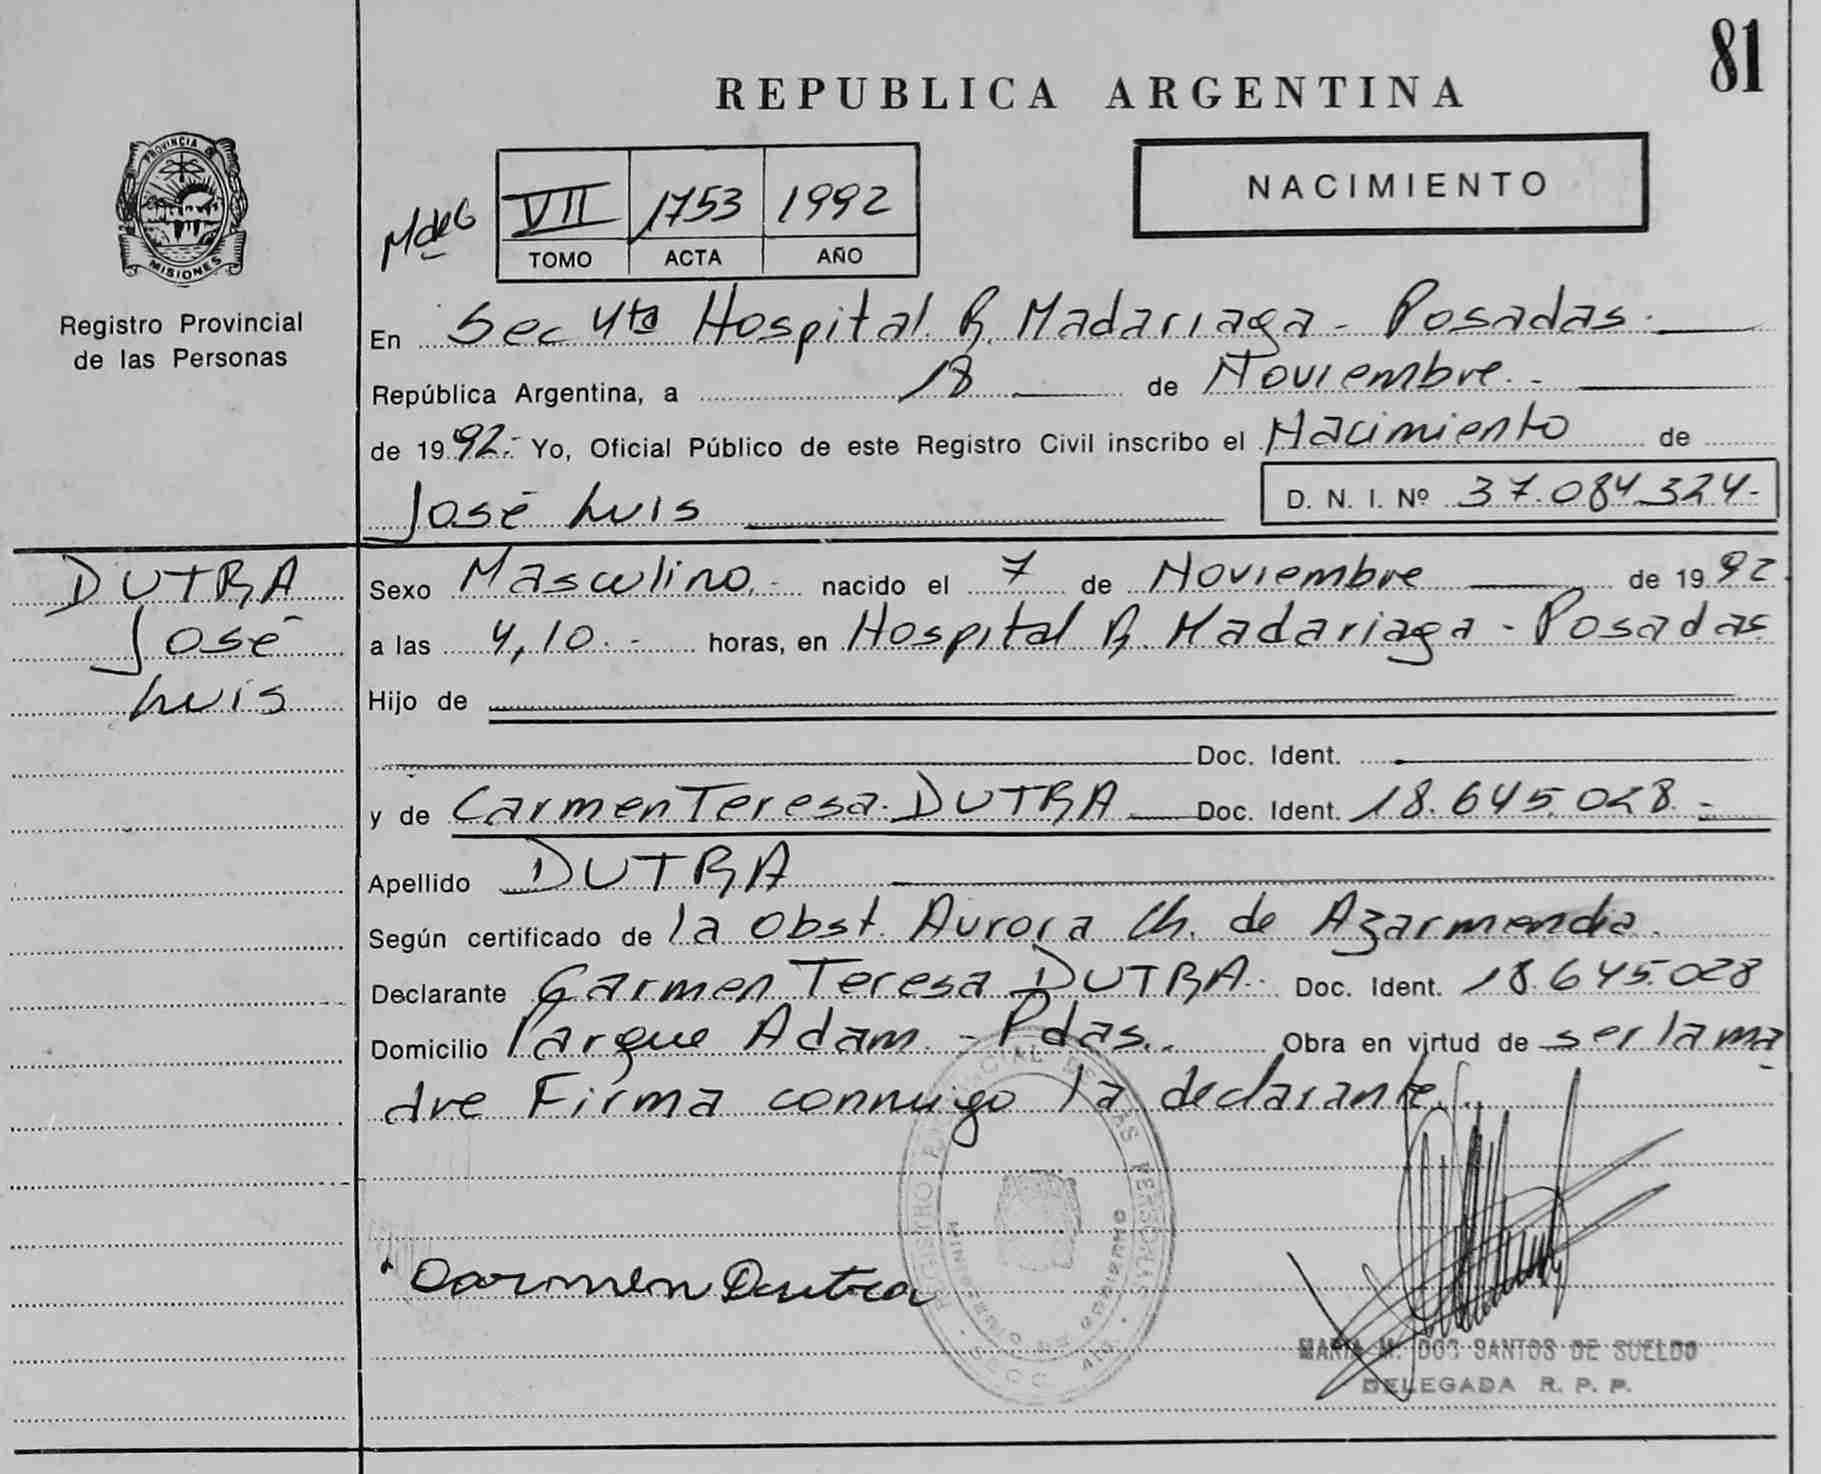 81
REPUBLICA ARGENTINA
NACIMIENTO
PROVINCIA DE
MISIONES
Registro Provincial
de las Personas
VII 1753 1992
TOMO ACTA AÑO
En Sec 4ta Hospital R. Madariaga - Posadas.
República Argentina, a 18 de Noviembre.-
de 1992.- Yo, Oficial Público de este Registro Civil inscribo el Nacimiento de
José Luis D. N. I. Nº 37.084.324-
DUTRA
José
Luis
Sexo Masculino.- nacido el 7 de Noviembre de 1992
a las 4,10.- horas, en Hospital R. Madariaga - Posadas
Hijo de
Doc. Ident.
y de Carmen Teresa DUTRA Doc. Ident. 18.645.028.-
Apellido DUTRA
Según certificado de la Obst. Aurora Ch. de Azarmendia.
Declarante Carmen Teresa DUTRA.- Doc. Ident. 18.645.028
Domicilio Parque Adam - Pdas.. Obra en virtud de ser la ma
dre Firma conmigo la declarante.
Carmen Dutra
REGISTRO PROVINCIAL DE LAS PERSONAS
MINISTERIO DE GOBIERNO
MARIA M. DOS SANTOS DE SUELDO
DELEGADA R. P. P.